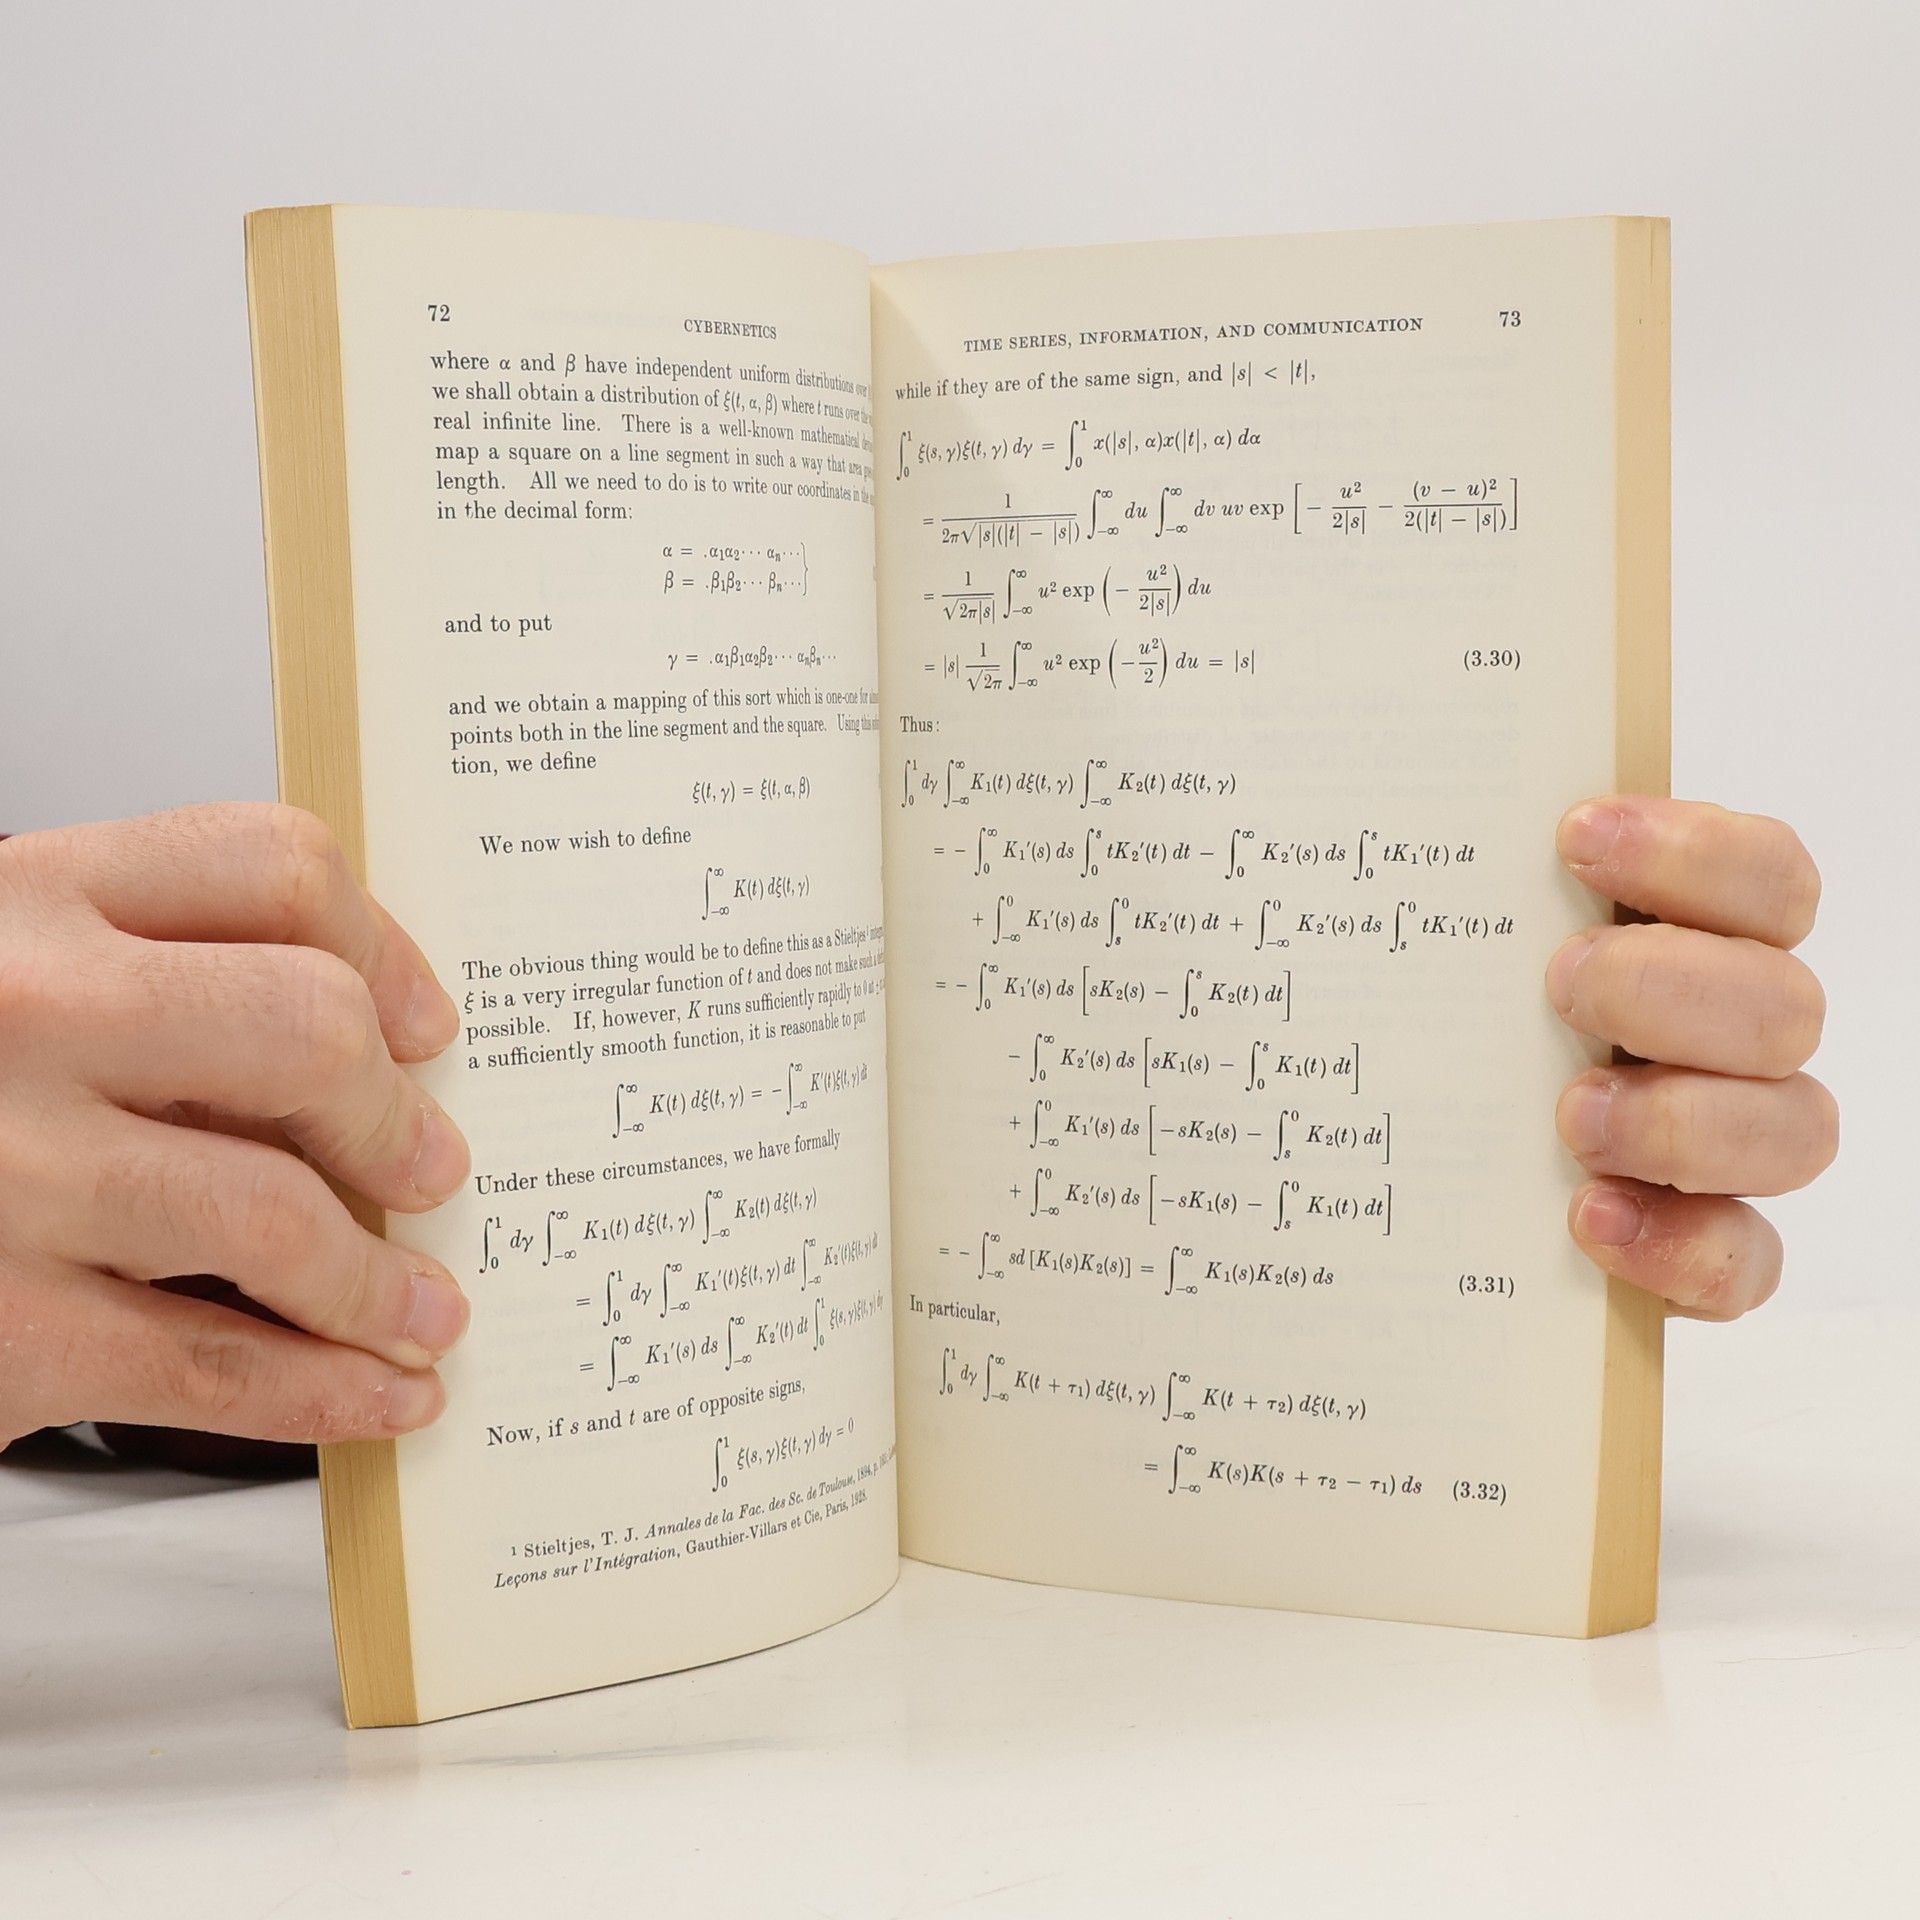 72
CYBERNETICS
where α and β have independent uniform distributions over
we shall obtain a distribution of ξ(t, α, β) where t runs over the
real infinite line. There is a well-known mathematical
map a square on a line segment in such a way that area
length. All we need to do is to write our coordinates in the
in the decimal form:
α = .α₁α₂··· αₙ···}
β = .β₁β₂··· βₙ···}
and to put
γ = .α₁β₁α₂β₂··· αₙβₙ···
and we obtain a mapping of this sort which is one-one for
points both in the line segment and the square. Using this
tion, we define
ξ(t, γ) = ξ(t, α, β)
We now wish to define
∫_{-∞}^{∞} K(t) dξ(t, γ)
The obvious thing would be to define this as a Stieltjes¹
ξ is a very irregular function of t and does not make such a
possible. If, however, K runs sufficiently rapidly to 0
a sufficiently smooth function, it is reasonable to put
∫_{-∞}^{∞} K(t) dξ(t, γ) = -∫_{-∞}^{∞} K'(t)ξ(t, γ) dt
Under these circumstances, we have formally
∫_0^1 dγ ∫_{-∞}^{∞} K₁(t) dξ(t, γ) ∫_{-∞}^{∞} K₂(t) dξ(t, γ)
= ∫_0^1 dγ ∫_{-∞}^{∞} K₁'(t)ξ(t, γ) dt ∫_{-∞}^{∞} K₂'(t)ξ(t, γ) dt
= ∫_{-∞}^{∞} K₁'(s) ds ∫_{-∞}^{∞} K₂'(t) dt ∫_0^1 ξ(s, γ)ξ(t, γ) dγ
Now, if s and t are of opposite signs,
∫_0^1 ξ(s, γ)ξ(t, γ) dγ = 0
¹ Stieltjes, T. J. Annales de la Fac. des Sc. de Toulouse, 1894, p.
Leçons sur l'Intégration, Gauthier-Villars et Cie, Paris, 1928.
TIME SERIES, INFORMATION, AND COMMUNICATION 73
while if they are of the same sign, and |s| < |t|,
∫_0^1 ξ(s, γ)ξ(t, γ) dγ = ∫_0^1 x(|s|, α)x(|t|, α) dα
= 1/(2π√(|s|(|t| − |s|))) ∫_{-∞}^{∞} du ∫_{-∞}^{∞} dv uv exp [− u²/(2|s|) − (v − u)²/(2(|t| − |s|))]
= 1/√(2π|s|) ∫_{-∞}^{∞} u² exp (− u²/(2|s|)) du
= |s| 1/√(2π) ∫_{-∞}^{∞} u² exp (−u²/2) du = |s| (3.30)
Thus:
∫_0^1 dγ ∫_{-∞}^{∞} K₁(t) dξ(t, γ) ∫_{-∞}^{∞} K₂(t) dξ(t, γ)
= − ∫_0^∞ K₁'(s) ds ∫_0^s tK₂'(t) dt − ∫_0^∞ K₂'(s) ds ∫_0^s tK₁'(t) dt
+ ∫_{-∞}^0 K₁'(s) ds ∫_s^0 tK₂'(t) dt + ∫_{-∞}^0 K₂'(s) ds ∫_s^0 tK₁'(t) dt
= − ∫_0^∞ K₁'(s) ds [sK₂(s) − ∫_0^s K₂(t) dt]
− ∫_0^∞ K₂'(s) ds [sK₁(s) − ∫_0^s K₁(t) dt]
+ ∫_{-∞}^0 K₁'(s) ds [−sK₂(s) − ∫_s^0 K₂(t) dt]
+ ∫_{-∞}^0 K₂'(s) ds [−sK₁(s) − ∫_s^0 K₁(t) dt]
= − ∫_{-∞}^{∞} sd [K₁(s)K₂(s)] = ∫_{-∞}^{∞} K₁(s)K₂(s) ds (3.31)
In particular,
∫_0^1 dγ ∫_{-∞}^{∞} K(t + τ₁) dξ(t, γ) ∫_{-∞}^{∞} K(t + τ₂) dξ(t, γ)
= ∫_{-∞}^{∞} K(s)K(s + τ₂ − τ₁) ds (3.32)